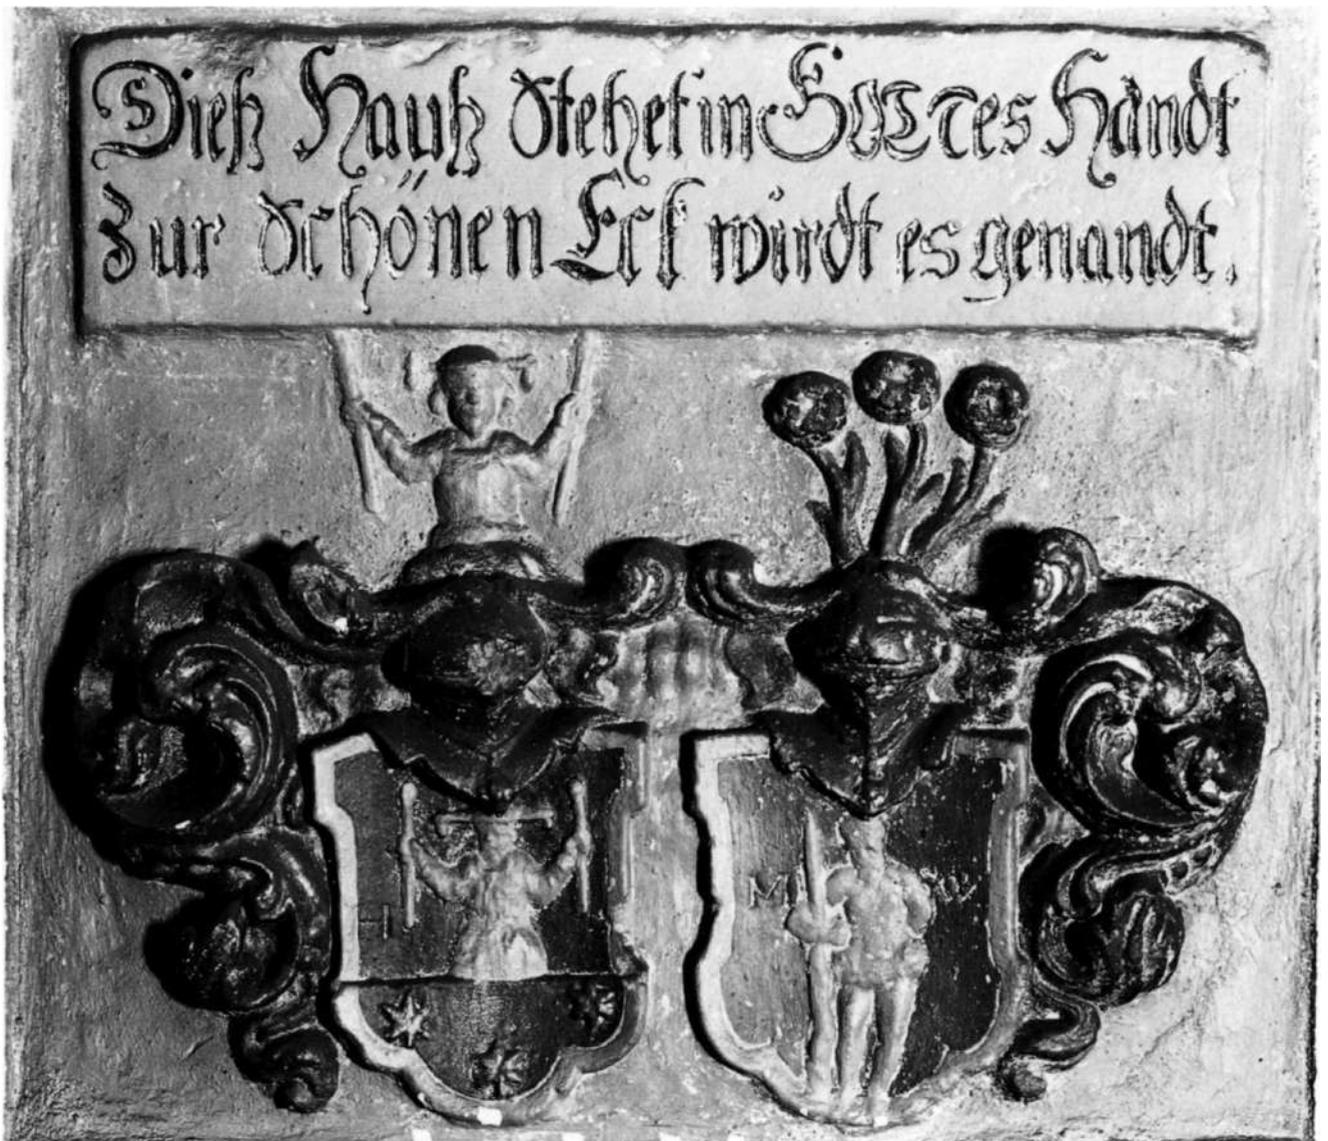 Dieß Hauß Stehet in GOTTes Handt
Zur Schönen Eck wirdt es genandt.
H
M W